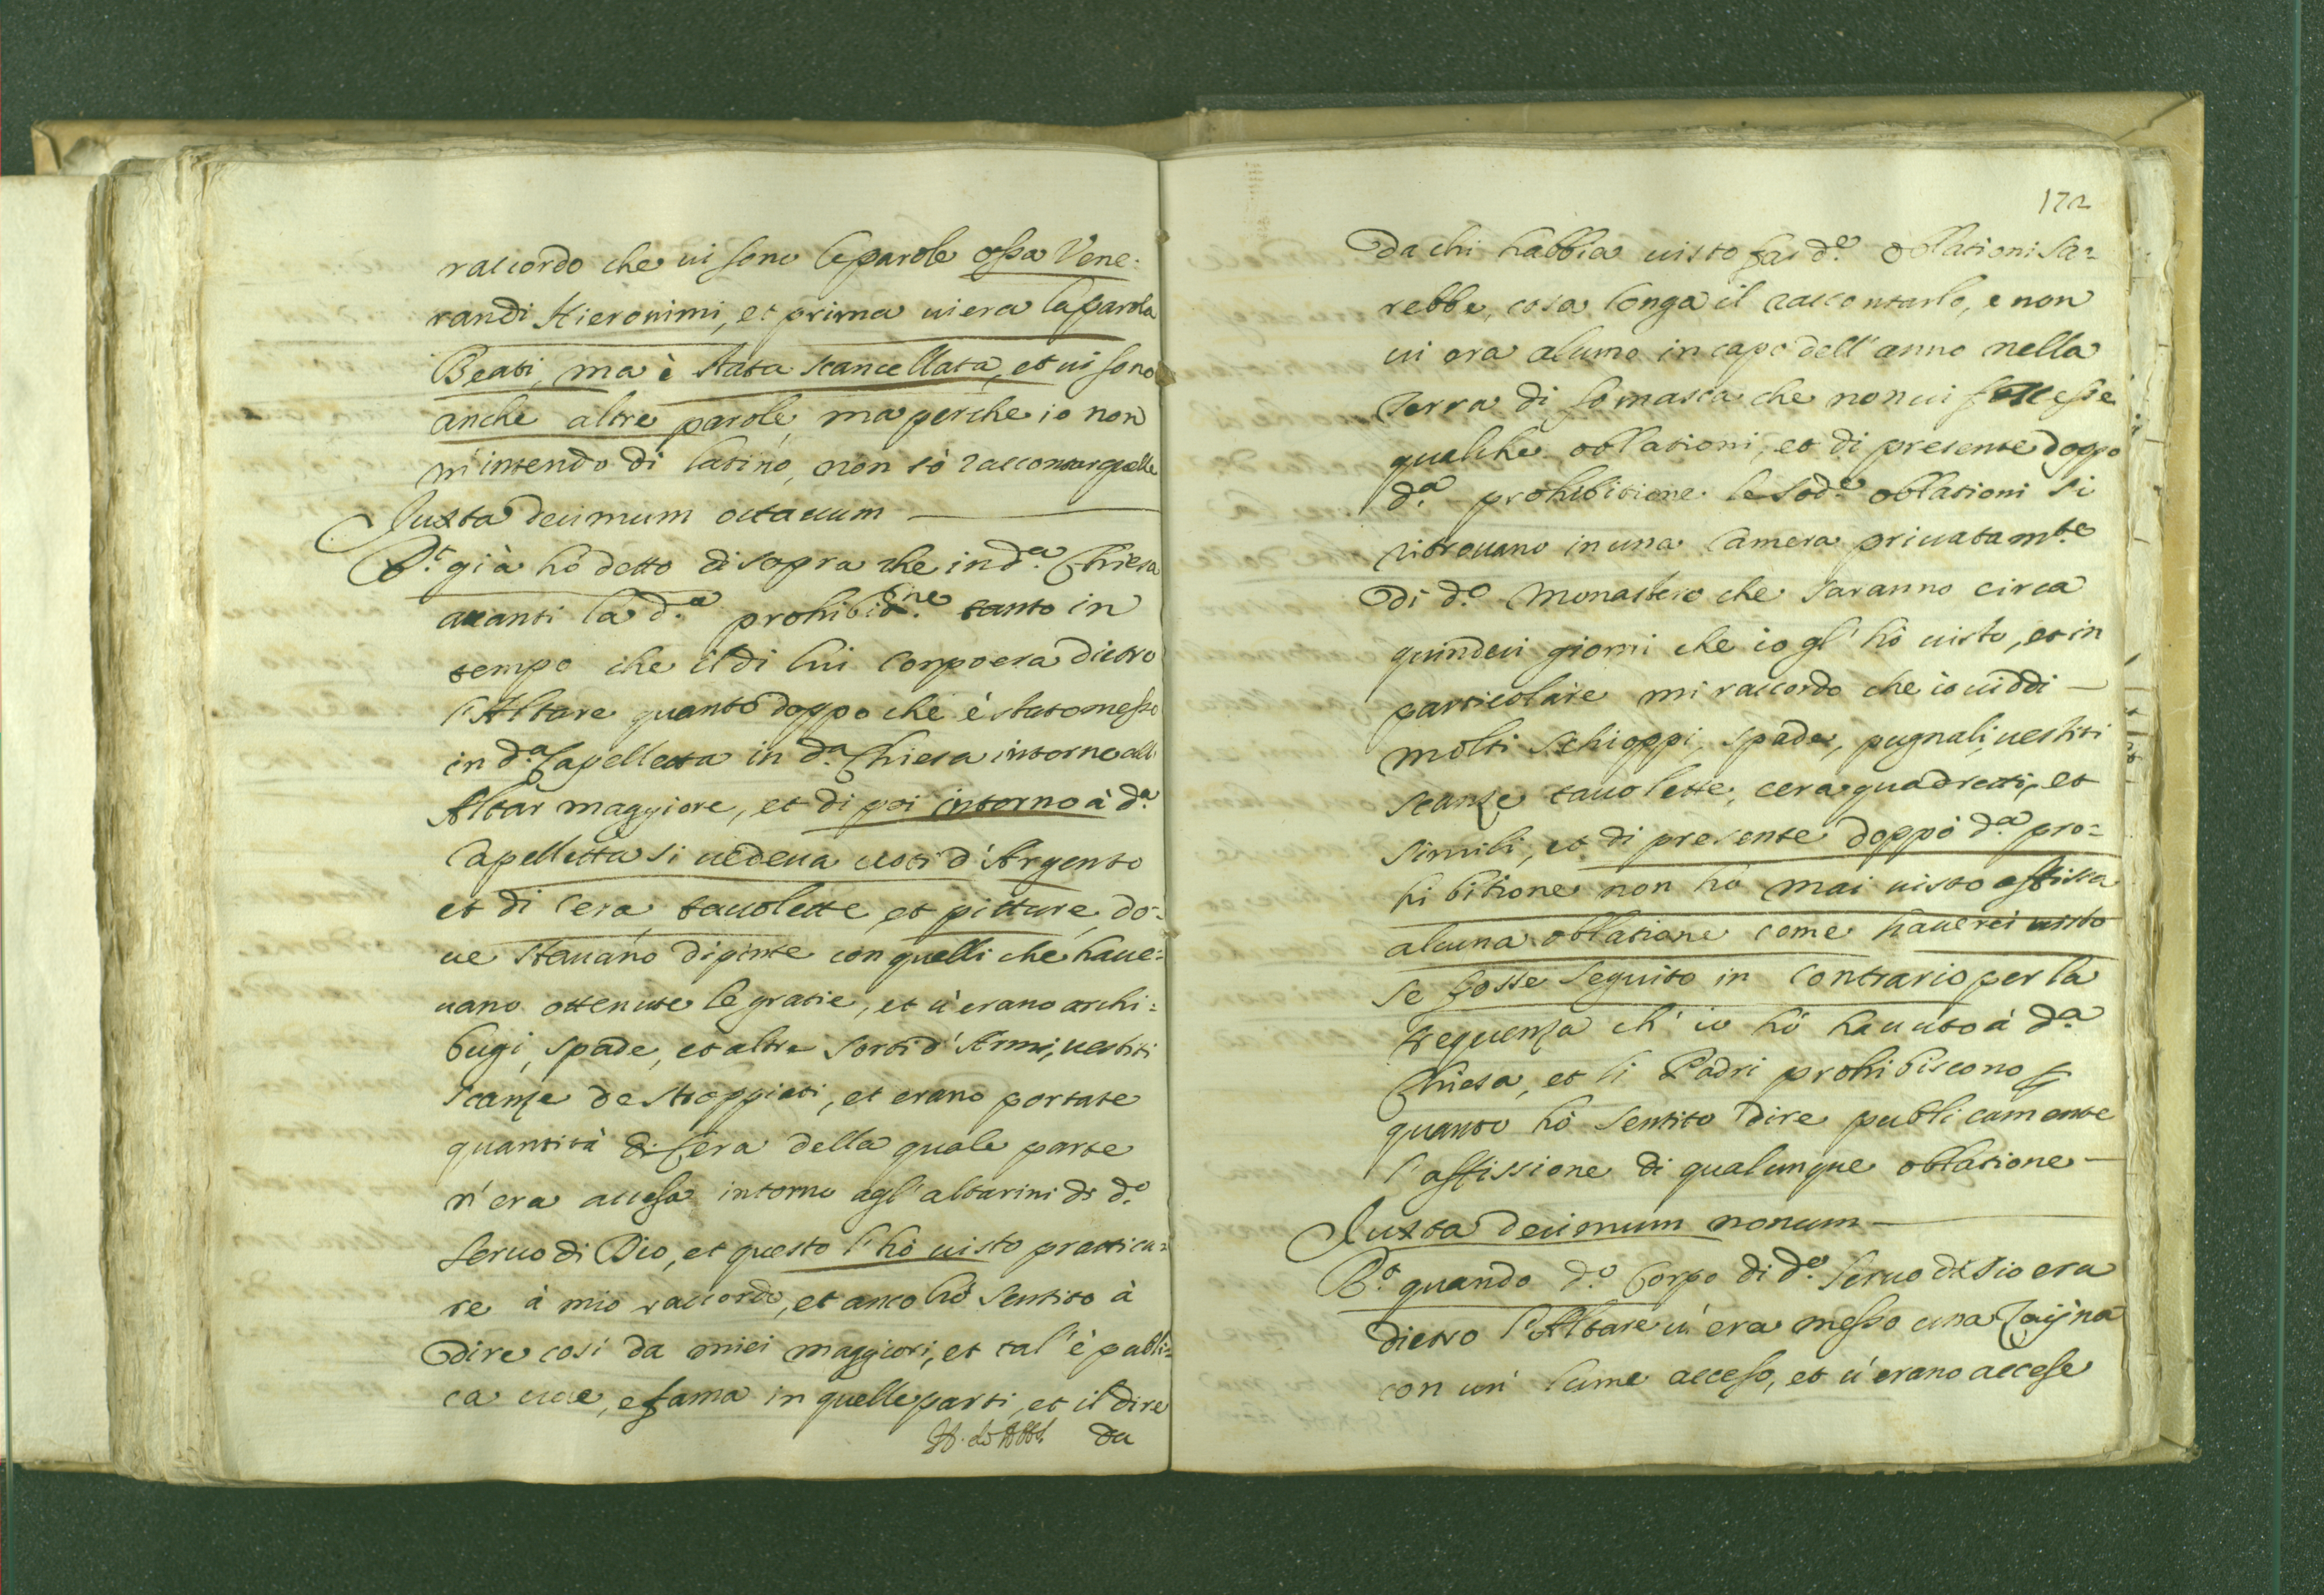 raccordo che ui sono le parole ossa Vene-
randi Hieronimi, et prima ui era la parola
Beati, ma è stata scancellata, et ui sono
anche altre parole, ma perche io non
m'intendo di latino, non sò raccontar quelle
Iuxta decimum octauum
R.t già hò detto di sopra che in d.a Chiesa
auanti la d.a prohibit.ne tanto in
tempo che il di lui Corpo era dietro
l'Altare quanto doppo che è stato messo
in d.a Capelletta in d.a Chiesa intorno all'
Altar maggiore, et di poi intorno à d.a
Capelletta si uedeua uoti d'Argento
et di Cera, tauolette, et pitture, do-
ue stauano dipinte con quelli che haue=
uano ottenute le gratie, et u'erano archi=
bugi, spade, et altre sorti d'Armi, uestiti
scanze de stroppiati, et erano portate
quantità di Cera della quale parte
n'era accesa intorno agl'altarini di d.o
Seruo di Dio, et questo l'hò uisto pratica=
re à mio raccordo, et anco hò sentito à
dire così da miei maggiori, et tal'è publi=
ca uoce, e fama in quelle parti, et il dire
da
172
Da chi habbia uisto far d.e oblationi sa=
rebbe, cosa longa il raccontarlo, e non
ui era alcuno in capo dell'anno nella
Terra di Somasca che non ui facesse
qualche oblationi, et di presente doppo
d.a prohibitione le sod.e oblationi si
ritrouano in una Camera priuatam.te
Di d.o Monastero che saranno circa
quindeci giorni che io gl'hò uisto, et in
particolare mi raccordo che io uiddi
molti schioppi, spade, pugnali, uestiti
scanze tauolette, cera, quadretti, et
simili, et di presente doppò d.a pro=
hibitione non hò mai uisto affissa
alcuna oblatione come hauerei uisto
se fosse seguito in contrario per la
frequenza ch'io hò hauuto à d.a
Chiesa, et li Padri prohibiscono p
quanto hò sentito dire publicamente
l'affissione di qualunque oblatione
Iuxta decimum nonum
R.t quando d.o Corpo di d.o Seruo di Dio era
dietro l'Altare u'era messo una
con un' lume acceso, et u'erano accese